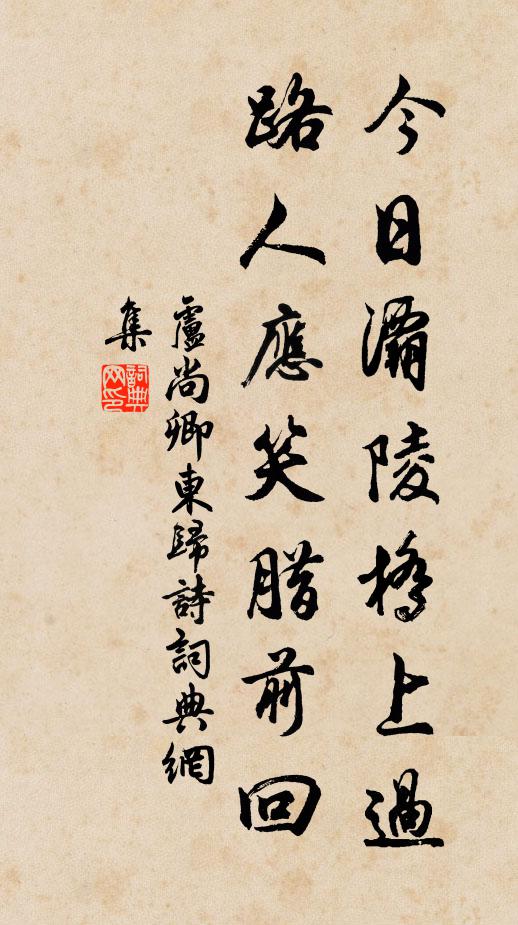 今日灞陵橋上過
路人應笑臘前回
盧尚卿東歸詩詞典網
集
詞典
网印